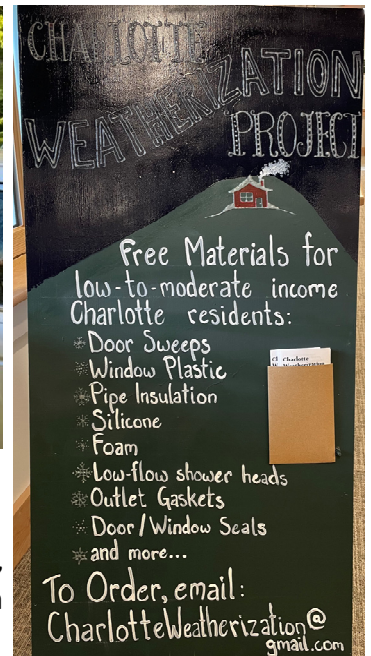 CHARLOTTE
WEATHERIZATION
PROJECT
Free Materials for
low-to-moderate income
Charlotte residents:
Door Sweeps
Window Plastic
Pipe Insulation
Silicone
Foam
Low-flow shower heads
Outlet Gaskets
Door/Window Seals
and more...
To Order, email:
CharlotteWeatherization@
gmail.com
Charlotte